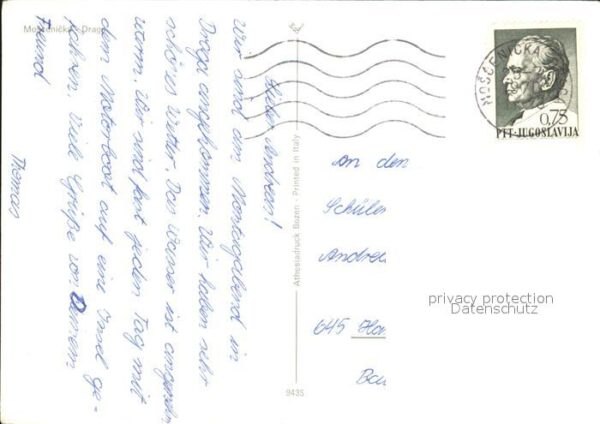 Lieber Andreas!
Wir sind am Montagabend in
Draga angekommen. Wir haben sehr
schönes Wetter. Das Wasser ist angenehm
warm. Wir sind fast jeden Tag mit
dem Motorboot auf eine Insel ge-
fahren. Viele Grüße von Deinem
Freund
Thomas
Draga
Athesiadruck Bozen - Printed in Italy
9435
MOŠĆENIČKA
0,75
PTT-JUGOSLAVIJA
An den
Schüler
Andrea
645 Ha
privacy protection
Datenschutz